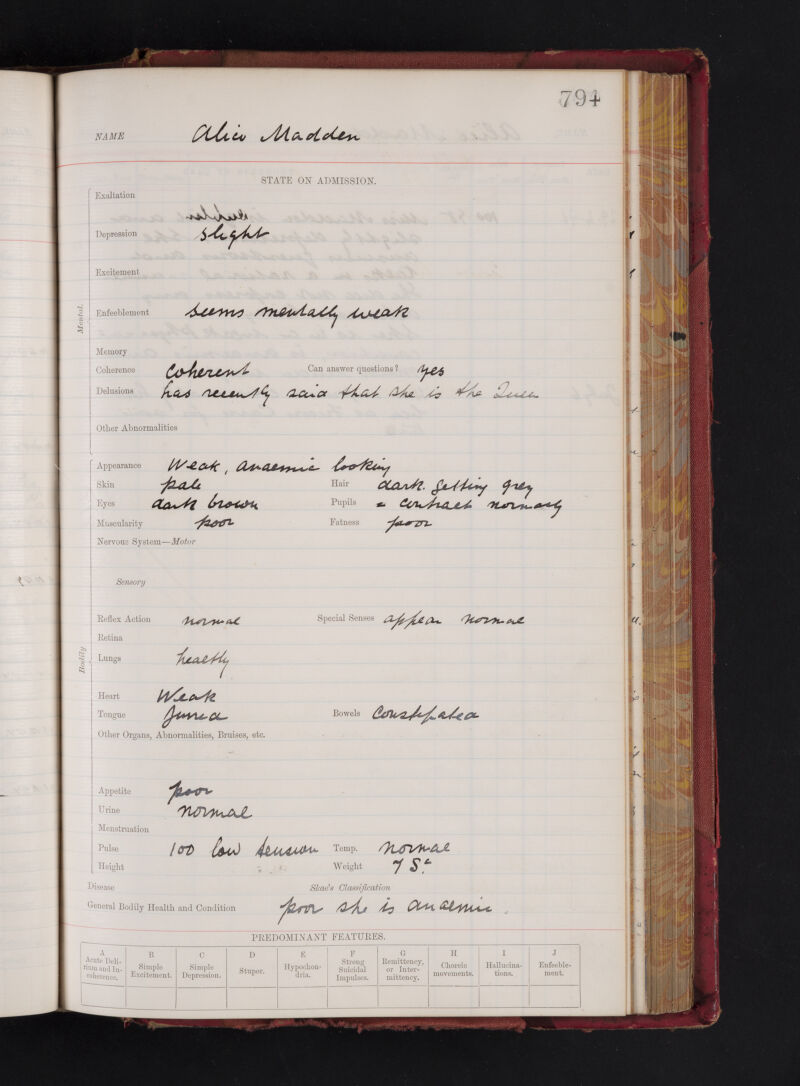 794
NAME Alice Madden
STATE ON ADMISSION.
Exaltation
Depression slight
Excitement
Mental.
Enfeeblement seems mentally weak
Memory
Coherence Coherent Can answer questions? yes
Delusions has recently said that she is the Queen
Other Abnormalities
Appearance Weak, anaemic looking
Skin pale Hair dark. getting grey
Eyes dark brown Pupils = contract normally
Muscularity poor Fatness poor
Nervous System—Motor
Sensory
Reflex Action normal Special Senses appear normal
Retina
Bodily
Lungs healthy
Heart Weak
Tongue furred Bowels Constipated
Other Organs, Abnormalities, Bruises, etc.
Appetite poor
Urine normal
Menstruation
Pulse 100 low tension Temp. normal
Height Weight 7 St
Disease Skae's Classification
General Bodily Health and Condition poor she is anaemic.
PREDOMINANT FEATURES.
A B C D E F G H I J
Acute Delirium and Incoherence. Simple Excitement. Simple Depression. Stupor. Hypochondria. Strong Suicidal Impulses. Remittency, or Intermittency. Choreic movements. Hallucinations. Enfeeblement.